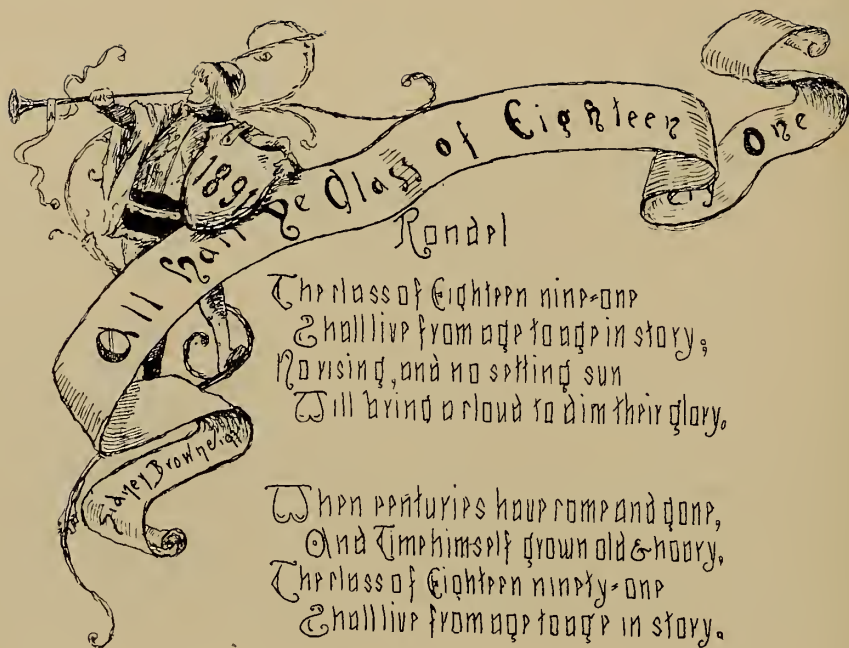 All Hail Ye Class of Eighteen ety One
1891
Rondel
The class of Eighteen nine-one
Shall live from age to age in story;
No rising, and no setting sun
Will bring a cloud to dim their glory.
Sidney Browne
When centuries have come and gone,
And Time himself grown old & hoary,
The class of Eighteen ninety-one
Shall live from age to age in story.